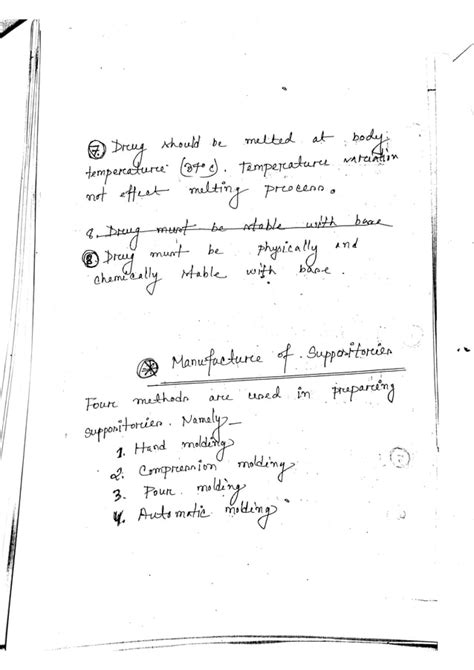 7. Drug should be melted at body
temperature (37°c). Temperature variation
not effect melting process.
8. Drug must be stable with base
8. Drug must be physically and
chemically stable with base.
Manufacture of Suppositories
Four methods are used in preparing
suppositories. Namely_
1. Hand molding
2. Compression molding
3. Pour molding
4. Automatic molding